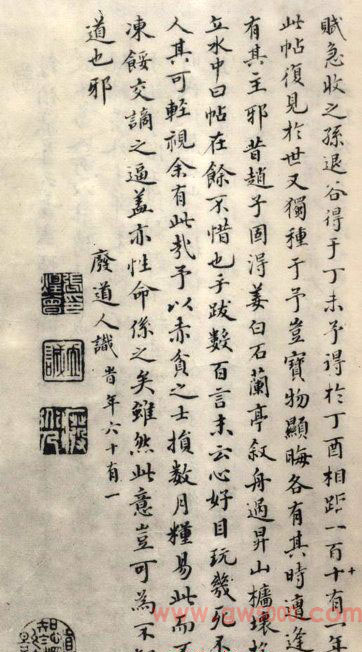 賦急收之孫退谷得于丁未予得於丁酉相距一百十有年
此帖復見於世又獨種于予豈寶物顯晦各有其時遭逢
有其主邪昔趙子固得姜白石蘭亭敘舟過昇山
立水中曰帖在餘不惜也手跋數百言末云心好目玩幾死不
人其可輕視余有此哉予以赤貧之士損數月糧易此而不
凍餒交謫之逼蓋亦性命係之矣雖然此意豈可為不
道也邪
廢道人識 旹年六十有一